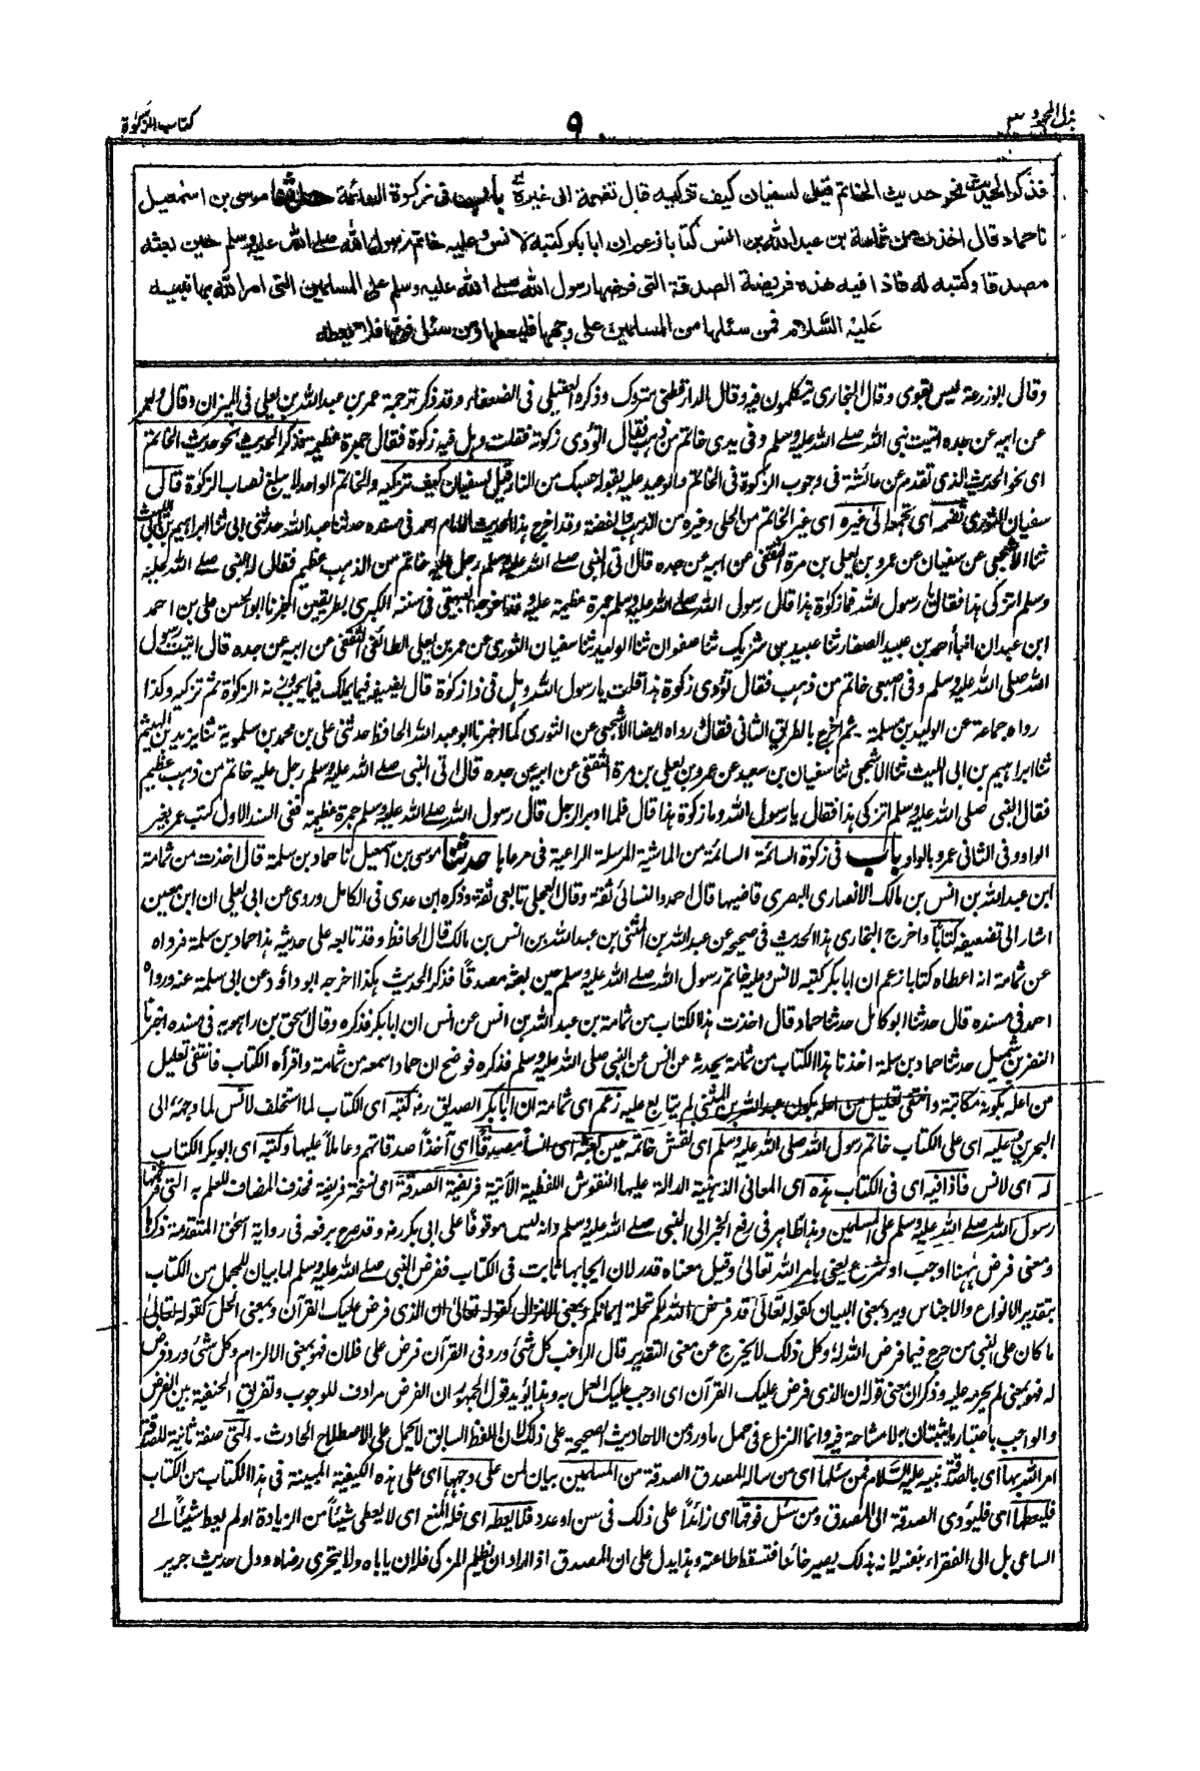 بذل المجهود ٣ ٩ كتاب الزكوة
فذكر الحديث نحو حديث الخاتم قيل لسفيان كيف تزكيه قال تضمه الى غيره باب فى زكوة السائمة حدثنا موسى بن اسمعيل
نا حماد قال اخذت من ثمامة بن عبد الله بن انس كتابا زعم ان ابا بكر كتبه لانس وعليه خاتم رسول الله صلى الله عليه وسلم حين بعثه
مصدقا وكتبه له فاذا فيه هذه فريضة الصدقة التى فرضها رسول الله صلے الله عليه وسلم على المسلمين التى امر الله بها نبيه
عليه السلام فمن سئلها من المسلمين على وجهها فليعطها ومن سئل فوقها فلا يعطه
وقال ابو زرعة ليس بقوى وقال البخارى يتكلمون فيه وقال الدارقطنى متروك وذكره العقيلى فى الضعفاء وقد ذكر ترجمة عمر بن عبد الله بن يعلى فى الميزان وقال
عن ابيه عن جده اتيت نبى الله صلے الله عليه وسلم وفى يدى خاتم من ذهب فقال اتؤدى زكوته فقلت وهل فيه زكوة فقال جمرة عظيمة فذكر الحديث نحو حديث الخاتم
اى نحو الحديث الذى تقدم عن عائشة فى وجوب الزكوة فى الخاتم والوعيد عليه بقوله حسبك من النار قيل لسفيان كيف تزكيه والخاتم الواحد لا يبلغ نصاب الزكوة قال
سفيان الثورى تضمه اى تجمعه الى غيره اى غير الخاتم من الحلى وغيره من الذهب والفضة وقد اخرج هذا الحديث الامام احمد فى مسنده حدثنا عبد الله حدثنى ابى ثنا ابراهيم بن ابى الليث
ثنا الاشجعى عن سفيان عن عمرو بن يعلى بن مرة الثقفى عن ابيه عن جده قال اتى النبى صلے الله عليه وسلم رجل عليه خاتم من الذهب عظيم فقال له النبى صلے الله عليه
وسلم اتزكى هذا فقال يا رسول الله فما زكوة هذا قال رسول الله صلے الله عليه وسلم جمرة عظيمة عليه وقد اخرجه البيهقى فى سننه الكبرى بطريقين اخبرنا ابو الحسن على بن احمد
ابن عبدان انبأ احمد بن عبيد الصفار ثنا عبيد بن شريك ثنا صفوان ثنا الوليد ثنا سفيان الثورى عن عمر بن يعلى الطائفى الثقفى عن ابيه عن جده قال اتيت رسول
الله صلى الله عليه وسلم وفى اصبعى خاتم من ذهب فقال تؤدى زكوة هذا قلت يا رسول الله وهل فى ذا زكوة قال نعم جمرة عظيمة ثم تزكيه وكذا
رواه جماعة عن الوليد بن مسلمة ثم اخرج بالطريق الثانى فقال رواه ايضا الاشجعى عن الثورى كما اخبرنا ابو عبد الله الحافظ حدثنى على بن محمد بن سلمويه ثنا يزيد بن الهيثم
ثنا ابراهيم بن ابى الليث ثنا الاشجعى ثنا سفيان بن سعيد عن عمرو بن يعلى بن مرة الثقفى عن ابيه عن جده قال اتى النبى صلے الله عليه وسلم رجل عليه خاتم من ذهب عظيم
فقال النبى صلى الله عليه وسلم اتزكى هذا فقال يا رسول الله وما زكوة هذا قال فلما ادبر الرجل قال رسول الله صلے الله عليه وسلم جمرة عظيمة ففى السند الاول كتب عمر بغير
الواو وفى الثانى عمرو بالواو باب فى زكوة السائمة السائمة من الماشية المرسلة الراعية فى مرعاها حدثنا موسى بن اسمعيل نا حماد بن سلمة قال اخذت من ثمامة
ابن عبد الله بن انس بن مالك الانصارى البصرى قاضيها قال احمد والنسائى ثقة وقال العجلى تابعى ثقة وذكره ابن عدى فى الكامل وروى عن ابى يعلى ان ابن معين
اشار الى تضعيفه كتابا واخرج البخارى هذا الحديث فى صحيحه عن عبد الله بن المثنى بن عبد الله بن انس بن مالك قال الحافظ وقد تابعه على حديثه هذا حماد بن سلمة فرواه
عن ثمامة انه اعطاه كتابا زعم ان ابا بكر كتبه لانس وعليه خاتم رسول الله صلے الله عليه وسلم حين بعثه مصدقا فذكر الحديث هكذا اخرجه ابو داؤد عن ابى سلمة عنه ورواه
احمد فى مسنده قال حدثنا ابو كامل حدثنا حماد قال اخذت هذا الكتاب من ثمامة بن عبد الله بن انس عن انس ان ابا بكر فذكره وقال اسحق بن راهويه فى مسنده اخبرنا
النضر بن شميل حدثنا حماد بن سلمة اخذنا هذا الكتاب من ثمامة يحدثه عن انس عن النبى صلى الله عليه وسلم فذكره فوضح ان حمادا سمعه من ثمامة واقرأه الكتاب فانتفى تعليل
من اعله بكونه مكاتبة وانتفى تعليل من اعله بكون عبد الله بن المثنى لم يتابع عليه زعم اى ثمامة ان ابا بكر الصديق رضه كتبه اى الكتاب لما استخلف لانس لما وجهه الى
البحرين وعليه اى على الكتاب خاتم رسول الله صلى الله عليه وسلم اى نقش خاتمه حين بعثه اى انسا مصدقا اى آخذا صدقاتهم وعاملا عليها وكتبه اى ابو بكر الكتاب
له اى لانس فاذا فيه اى فى الكتاب هذه اى المعانى الذهنية الدالة عليها النقوش اللفظية الآتية فريضة الصدقة اى نسخة فريضة فحذف المضاف للعلم به التى فرضها
رسول الله صلے الله عليه وسلم على المسلمين وهذا ظاهر فى رفع الخبر الى النبى صلے الله عليه وسلم وانه ليس موقوفا على ابى بكر رضه وقد صرح برفعه فى رواية اسحق المتقدمة ذكرها
ومعنى فرض ههنا اوجب او شرع يعنى بامر الله تعالى وقيل معناه قدر لان ايجابها ثابت فى الكتاب ففرض النبى صلے الله عليه وسلم لها بيان للمجمل من الكتاب
بتقدير الانواع والاجناس ويرد بمعنى البيان كقوله تعالى قد فرض الله لكم تحلة ايمانكم وبمعنى الانزال كقوله تعالى ان الذى فرض عليك القرآن وبمعنى الحل كقوله تعالى
ما كان على النبى من حرج فيما فرض الله له وكل ذلك لا يخرج عن معنى التقدير قال الراغب كل شئ ورد فى القرآن فرض على فلان فهو بمعنى الالزام وكل شئ ورد فرض
له فهو بمعنى لم يحرمه عليه وذكر ان معنى قوله ان الذى فرض عليك القرآن اى اوجب عليك العمل به وهذا يؤيد قول الجمهور ان الفرض مرادف للوجوب وتفريق الحنفية بين الفرض
والواجب باعتبار ما يثبتان به لا مشاحة فيه وانما النزاع فى حمل ما ورد من الاحاديث الصحيحة على ذلك لان اللفظ السابق لا يحمل على الاصطلاح الحادث ـ التى صفة ثانية للصدقة
امر الله بها اى بالصدقة نبيه عليه السلام فمن سئلها اى من ساله المصدق الصدقة من المسلمين بيان لمن على وجهها اى على هذه الكيفية المبينة فى هذا الكتاب من الكتاب
فليعطها اى فليؤدى الصدقة الى المصدق ومن سئل فوقها اى زائدا على ذلك فى سن او عدد فلا يعطه اى فله المنع اى لا يعطى شيئا من الزيادة او لم يعط شيئا الے
الساعى بل الى الفقراء بنفسه لانه بذلك يصير خائنا فتسقط طاعته وهذا يدل على ان المصدق اذا اراد ان يظلم المزكى فله ان ياباه ولا يتحرى رضاه ودل حديث جرير